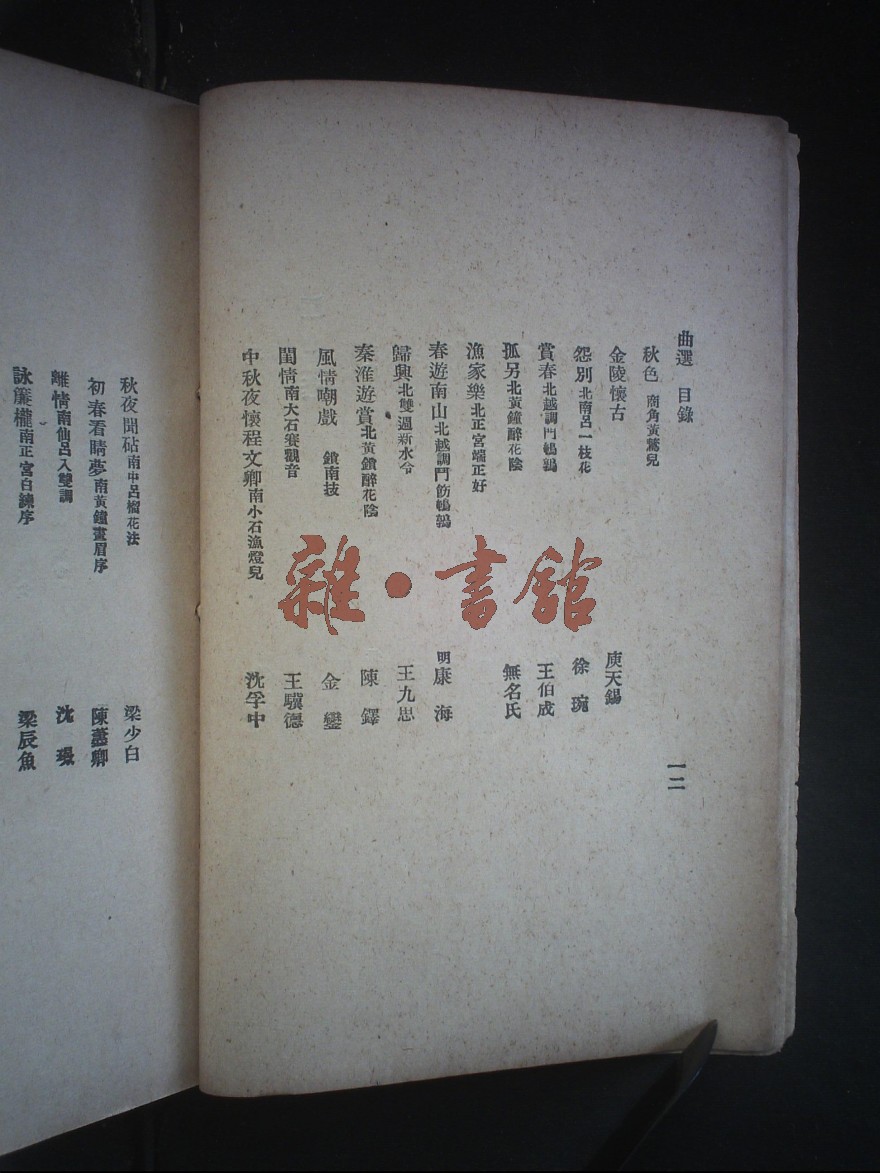 曲選 目錄
秋色 商角黃鶯兒
金陵懷古 庾天錫
怨別北南呂一枝花 徐琬
賞春北越調鬥鵪鶉 王伯成
孤另北黃鐘醉花陰 無名氏
漁家樂北正宮端正好
春遊南山北越調鬥鵪鶉 明康海
歸興北雙調新水令 王九思
秦淮遊賞北黃鐘醉花陰 陳鐸
風情嘲戲 金鑾
閨情南大石賽觀音 王驥德
中秋夜懷程文卿南小石漁燈兒 沈孚中
一二
雜·書館
秋夜聞砧南中呂榴花泣 梁少白
初春看晴夢南黃鐘畫眉序 陳藎卿
離情南仙呂入雙調 沈璟
詠簾櫳南正宮白練序 梁辰魚